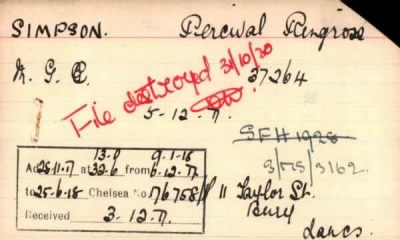 SIMPSON. Percival Ringrose
M. G. C. 37264
File destroyed 31/10/30
5-12-17.
SFH 1928
3/MS/3162.
13.0 9-1-18
Ad 28-11-17 at 32-6 from 5-12-17.
to 25-6-18 Chelsea No. 76758/P
Received 3-12-17.
11 Taylor St.
Bury
Lancs.